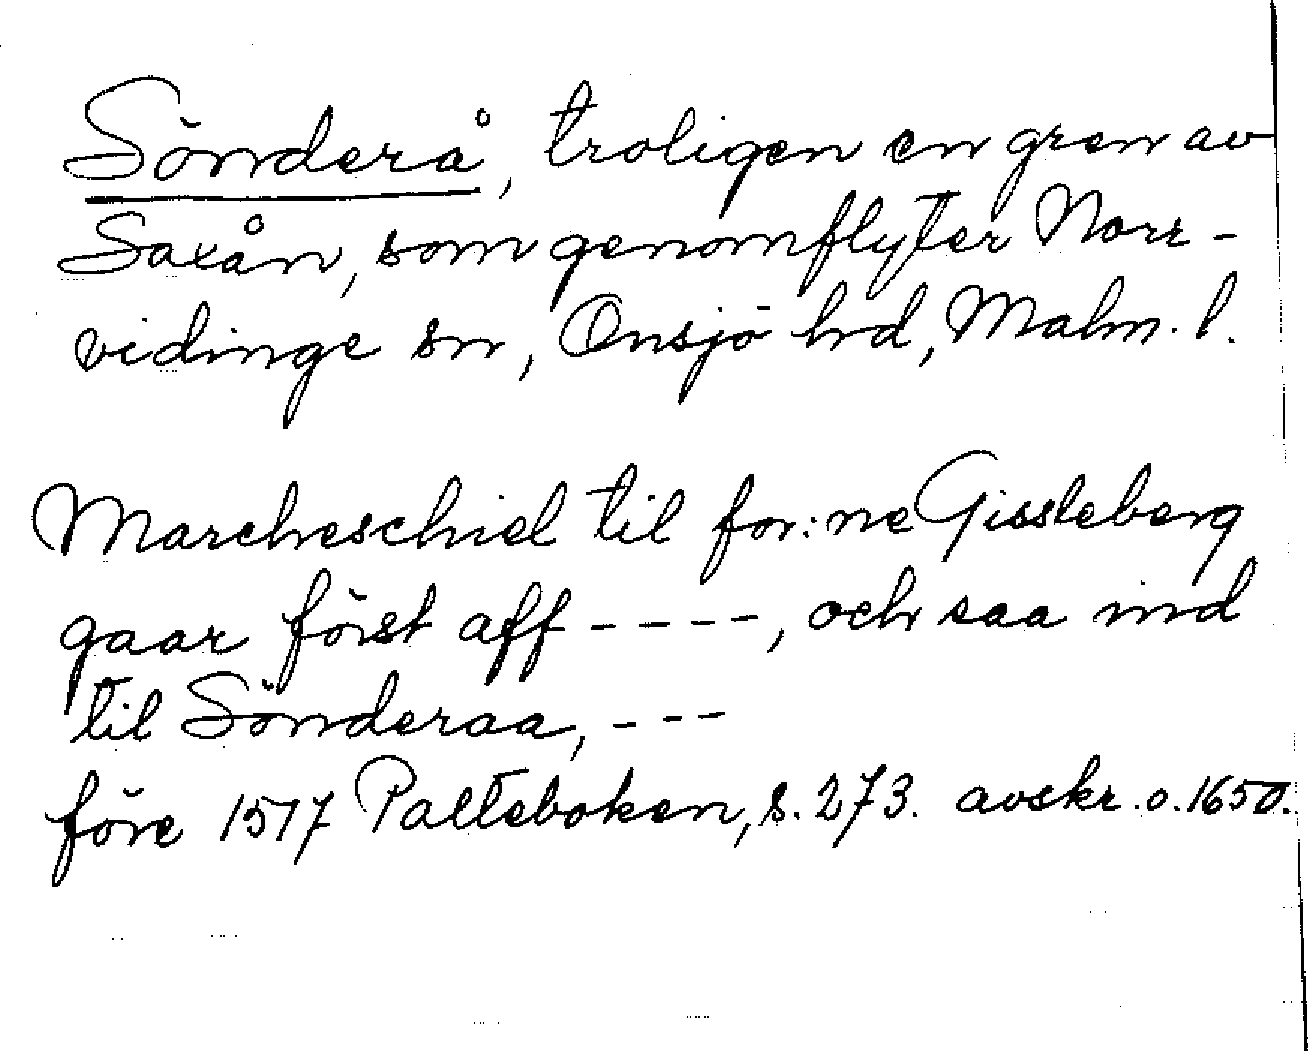 Sönderå, troligen en gren av
Saxån, som genomflyter Norr-
vidinge sn, Onsjö hd, Malm. l.
Marcheschiel til for:ne Gissleberg
gaar först aff ----, och saa ind
til Sönderaa, ---
före 1517 Palteboken, s. 273. avskr. o. 1650.